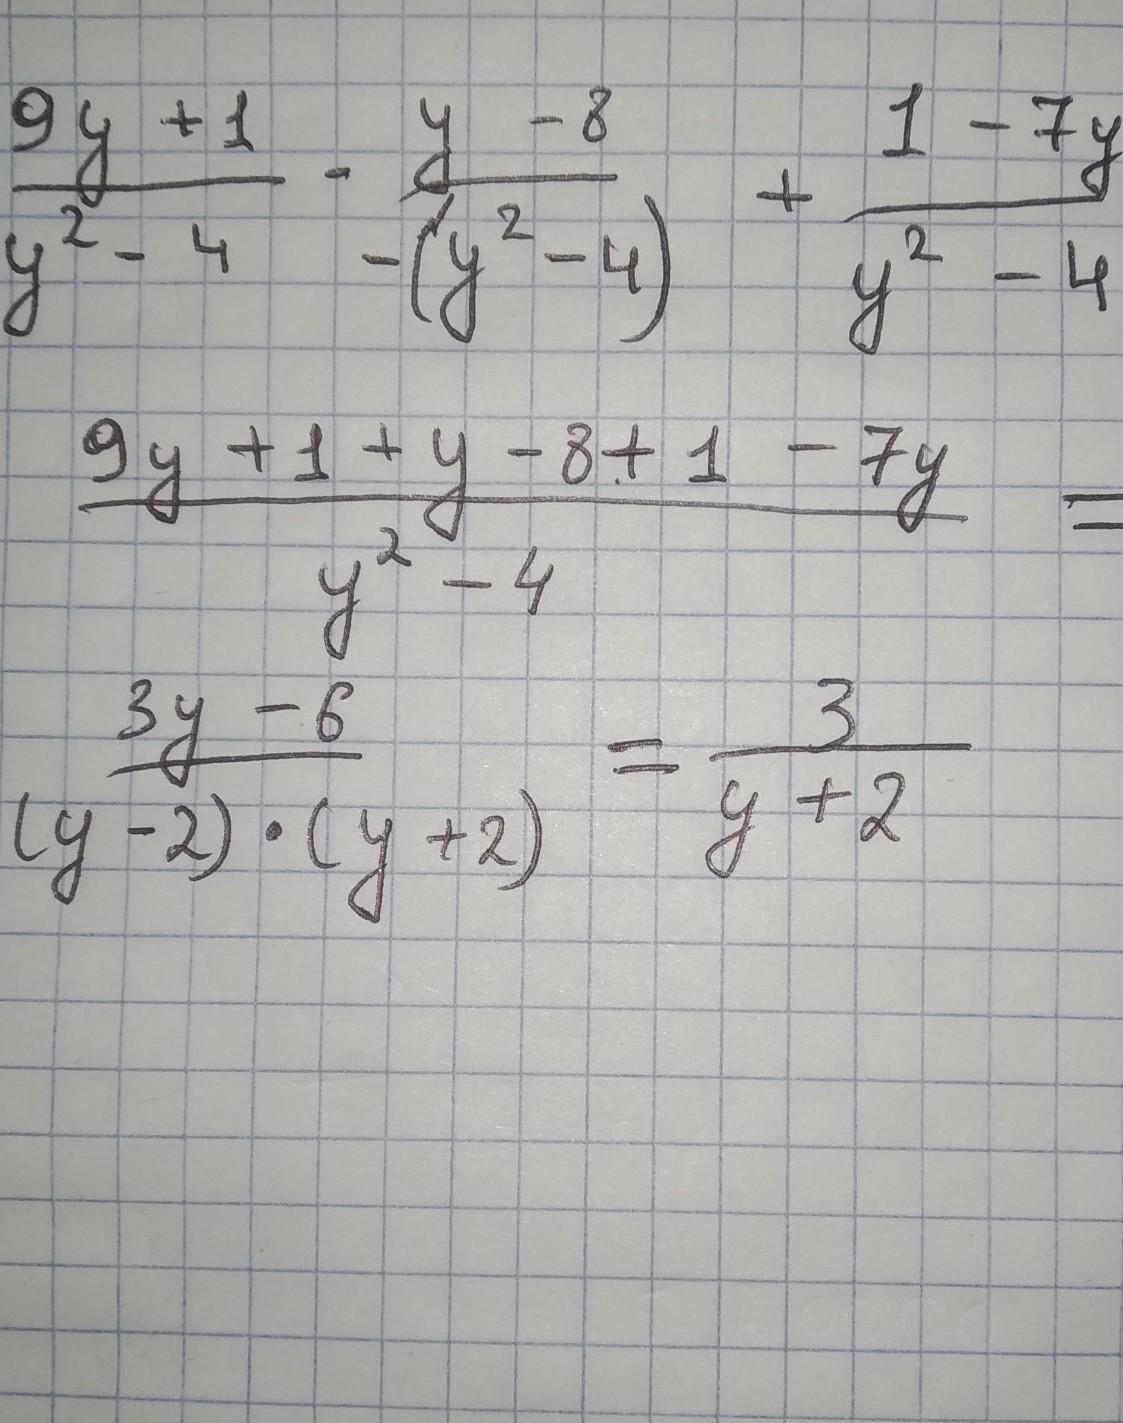 (9y + 1)/(y² - 4) - (y - 8)/(-(y² - 4)) + (1 - 7y)/(y² - 4)
(9y + 1 + y - 8 + 1 - 7y)/(y² - 4) =
(3y - 6)/((y - 2) · (y + 2)) = 3/(y + 2)